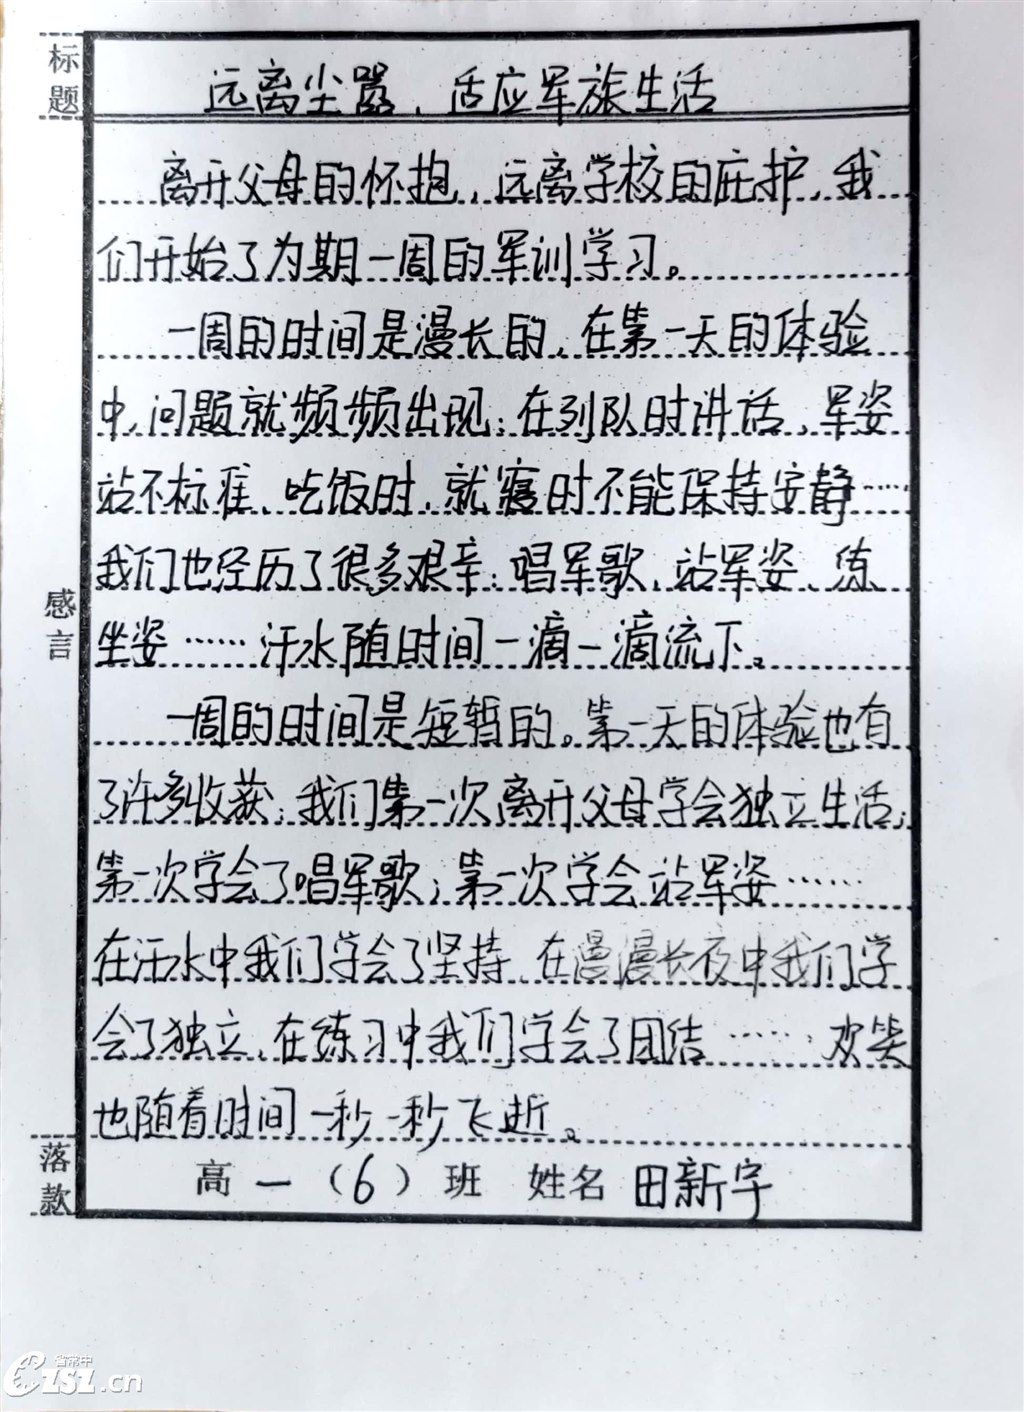 标题
远离尘嚣，适应军旅生活
离开父母的怀抱，远离学校的庇护，我
们开始了为期一周的军训学习。
一周的时间是漫长的，在第一天的体验
中，问题就频频出现：在列队时讲话、军姿
站不标准、吃饭时、就寝时不能保持安静……
我们也经历了很多艰辛：唱军歌、站军姿、练
感言
坐姿……汗水随时间一滴一滴流下。
一周的时间是短暂的。第一天的体验也有
了许多收获：我们第一次离开父母学会独立生活；
第一次学会了唱军歌；第一次学会站军姿……
在汗水中我们学会了坚持、在漫漫长夜中我们学
会了独立、在练习中我们学会了团结……，欢笑
也随着时间一秒一秒飞逝。
落款
高一（6）班 姓名 田新宇
省常中
CZSZ.cn